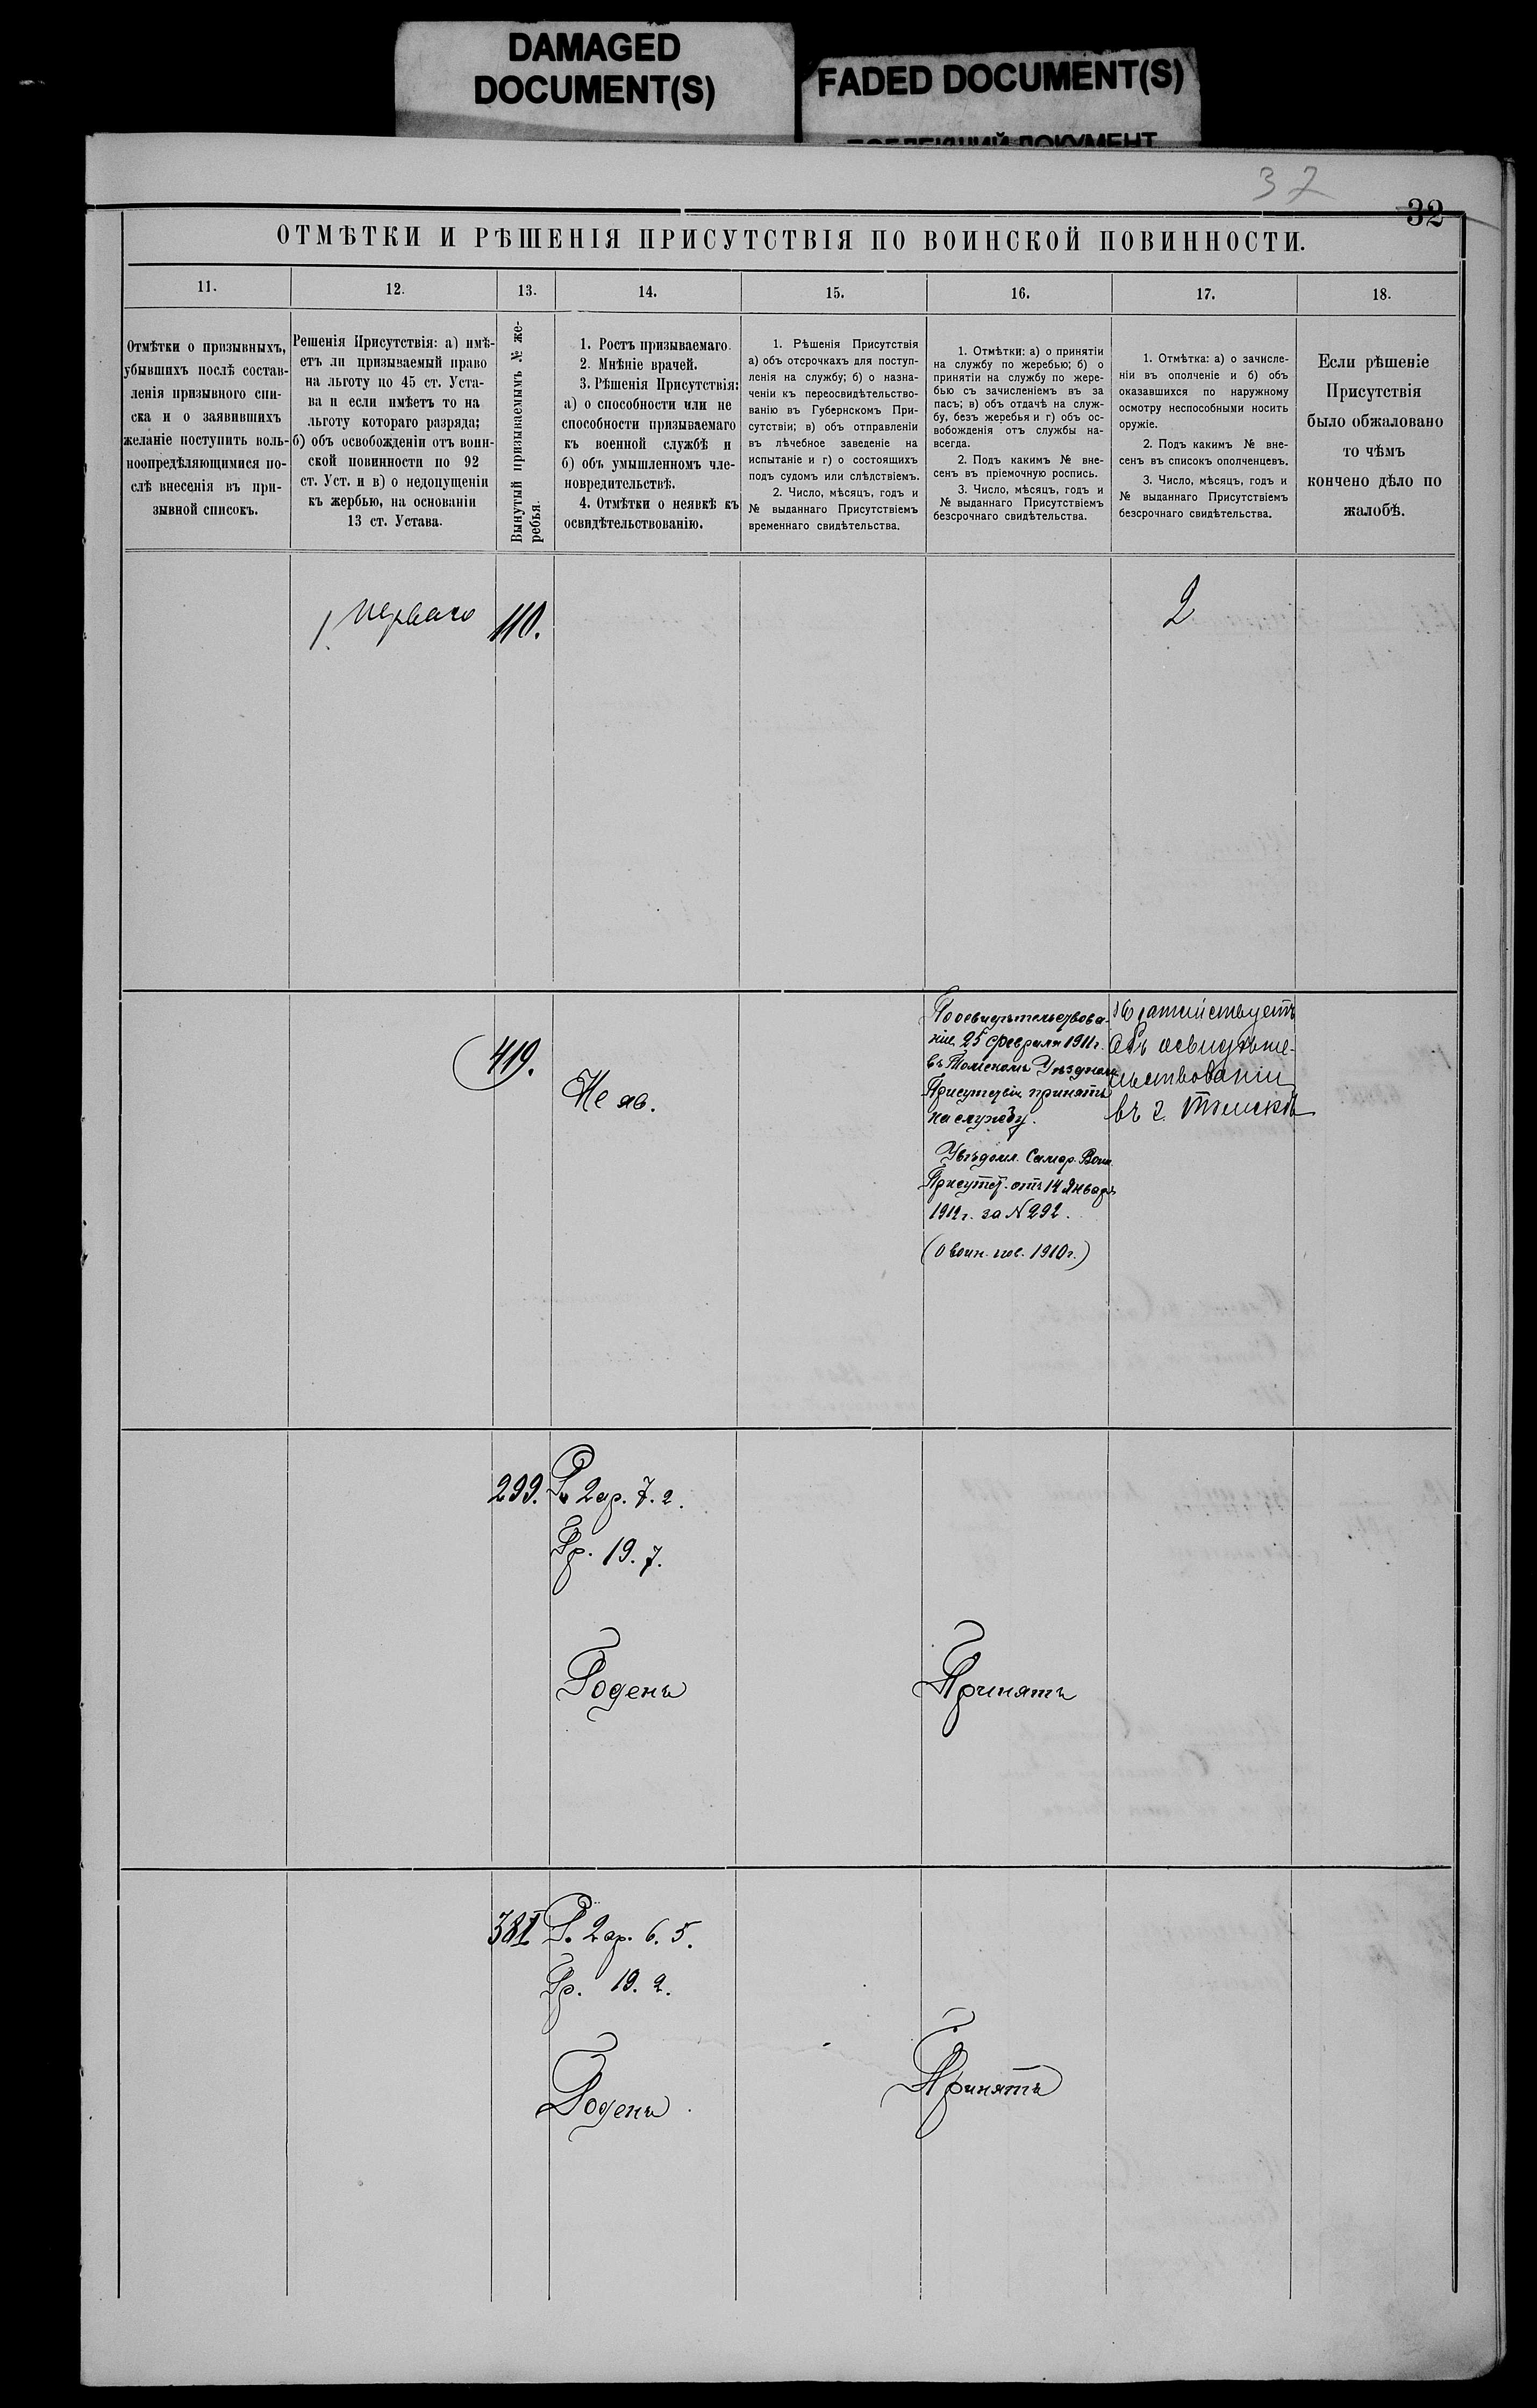 DAMAGED
DOCUMENT(S)
FADED DOCUMENT(S)
37
32
ОТМѢТКИ И РѢШЕНІЯ ПРИСУТСТВІЯ ПО ВОИНСКОЙ ПОВИННОСТИ.
11.
12.
13.
14.
15.
16.
17.
18.
Отмѣтки о призывныхъ,
убывшихъ послѣ состав-
ленія призывного спи-
ска и о заявившихъ
желаніе поступить воль-
ноопредѣляющимися по-
слѣ внесенія въ при-
зывной списокъ.
Решенія Присутствія: а) имѣ-
етъ ли призываемый право
на льготу по 45 ст. Уста-
ва и если имѣетъ то на
льготу котораго разряда;
б) объ освобожденіи отъ воин-
ской повинности по 92
ст. Уст. и в) о недопущеніи
къ жербью, на основаніи
13 ст. Устава.
Вынутый призываемымъ № же-
ребья.
1. Ростъ призываемаго.
2. Мнѣніе врачей.
3. Рѣшенія Присутствія:
а) о способности или не
способности призываемаго
къ военной службѣ и
б) объ умышленномъ чле-
новредительствѣ.
4. Отмѣтки о неявкѣ къ
освидѣтельствованію.
1. Рѣшенія Присутствія
а) объ отсрочкахъ для поступ-
ленія на службу; б) о назна-
ченіи къ переосвидѣтельство-
ванію въ Губернскомъ При-
сутствіи; в) объ отправленіи
въ лѣчебное заведеніе на
испытаніе и г) о состоящихъ
подъ судомъ или слѣдствіемъ.
2. Число, мѣсяцъ, годъ и
№ выданнаго Присутствіемъ
временнаго свидѣтельства.
1. Отмѣтки: а) о принятіи
на службу по жеребью; б) о
принятіи на службу по жере-
бью съ зачисленіемъ въ за
пасъ; в) объ отдачѣ на служ-
бу, безъ жеребья и г) объ ос-
вобожденія отъ службы на-
всегда.
2. Подъ какимъ № вне-
сенъ въ пріемочную роспись.
3. Число, мѣсяцъ, годъ и
№ выданнаго Присутствіемъ
безсрочнаго свидѣтельства.
1. Отмѣтка: а) о зачисле-
ніи въ ополченіе и б) объ
оказавшихся по наружному
осмотру неспособными носить
оружіе.
2. Подъ какимъ № вне-
сенъ въ списокъ ополченцевъ.
3. Число, мѣсяцъ, годъ и
№ выданнаго Присутствіемъ
безсрочнаго свидѣтельства.
Если рѣшеніе
Присутствія
было обжаловано
то чѣмъ
кончено дѣло по
жалобѣ.
1. перваго
110.
2
419.
Не яв.
По освидѣтельствова-
ніи 25 февраля 1911 г.
въ Томскомъ Уѣздномъ
Присутствіи принятъ
на службу.
Увѣдомл. Самар. Воин.
Присутст. отъ 14 Января
1912 г. за № 292.
(о воин. пов. 1910 г.)
Ходатайствуетъ
объ освидѣте-
льствованіи
въ г. Томскѣ
299.
Р. 2 ар. 7. 2.
Гр. 19. 7.
Годенъ
Принятъ
381
Р. 2 ар. 6. 5.
Гр. 19. 2.
Годенъ
Принятъ